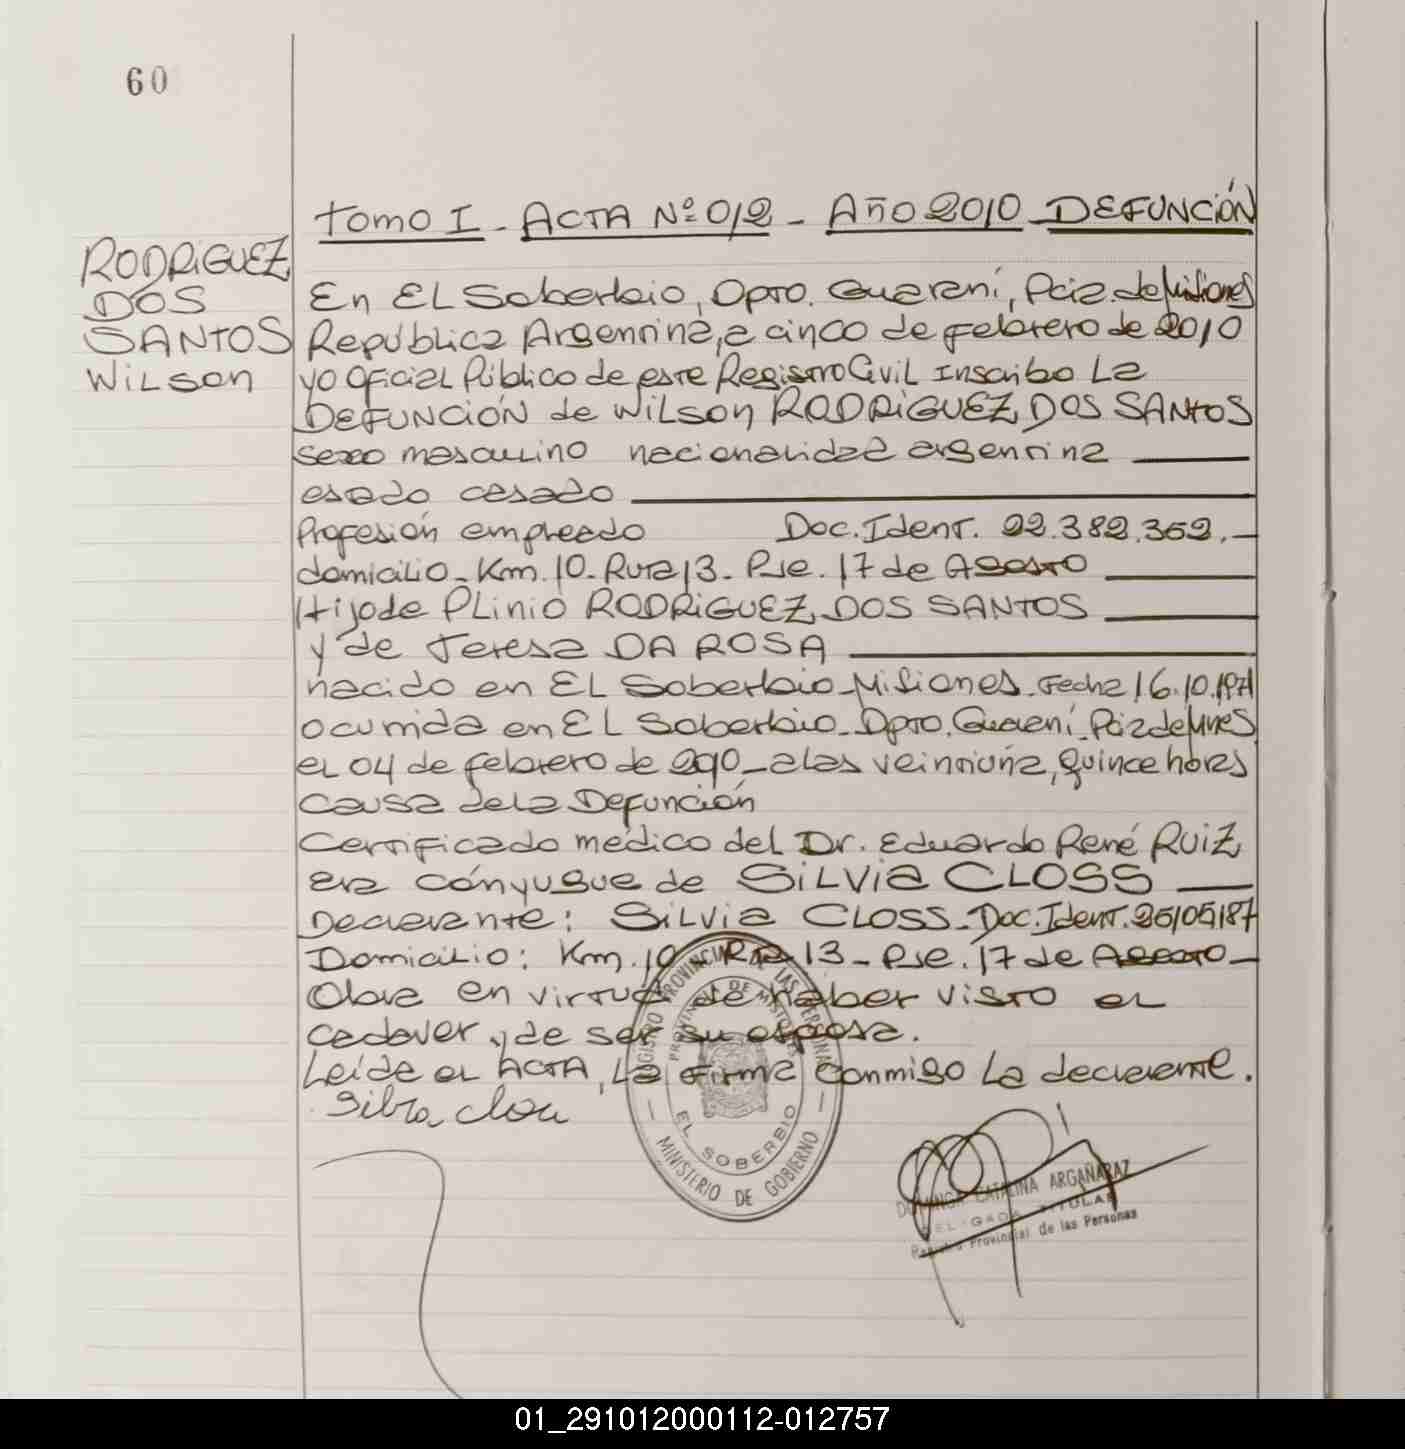 60
Tomo I - ACTA Nº 012 - AÑO 2010 - DEFUNCIÓN
RODRIGUEZ
DOS
SANTOS
WILSON
En EL Soberbio, Dpto. Guaraní, Pcia. de Misiones
República Argentina, a cinco de febrero de 2010
yo Oficial Público de este Registro Civil Inscribo La
DEFUNCIÓN de WILSON RODRIGUEZ DOS SANTOS
sexo masculino nacionalidad argentina
estado casado
Profesión empleado Doc. Ident. 22.382.352.-
domicilio - Km. 10 - Ruta 13 - Pje. 17 de Agosto
Hijo de PLinio RODRIGUEZ DOS SANTOS
y de Teresa DA ROSA
nacido en EL Soberbio - Misiones. Fecha 16.10.1971
ocurrida en EL Soberbio - Dpto. Guaraní - Pcia de Mnes
el 04 de febrero de 2010 - a las veintiuna, quince horas
Causa de la Defunción
Certificado médico del Dr. Eduardo René RUIZ
era cónyugue de SILVIA CLOSS
Declarante: SILVIA CLOSS - Doc. Ident. 25105187
Domicilio: Km. 10 - Rta 13 - Pje. 17 de Agosto -
Obra en virtud de haber visto el
cadaver y de ser su esposa.
Leída el ACTA, La firma conmigo La declarante.
REGISTRO PROVINCIAL DE LAS PERSONAS
PROVINCIA DE MISIONES
EL SOBERBIO
MINISTERIO DE GOBIERNO
DOMINGA CATALINA ARGAÑARAZ
DELEGADA TITULAR
Registro Provincial de las Personas
01_291012000112-012757